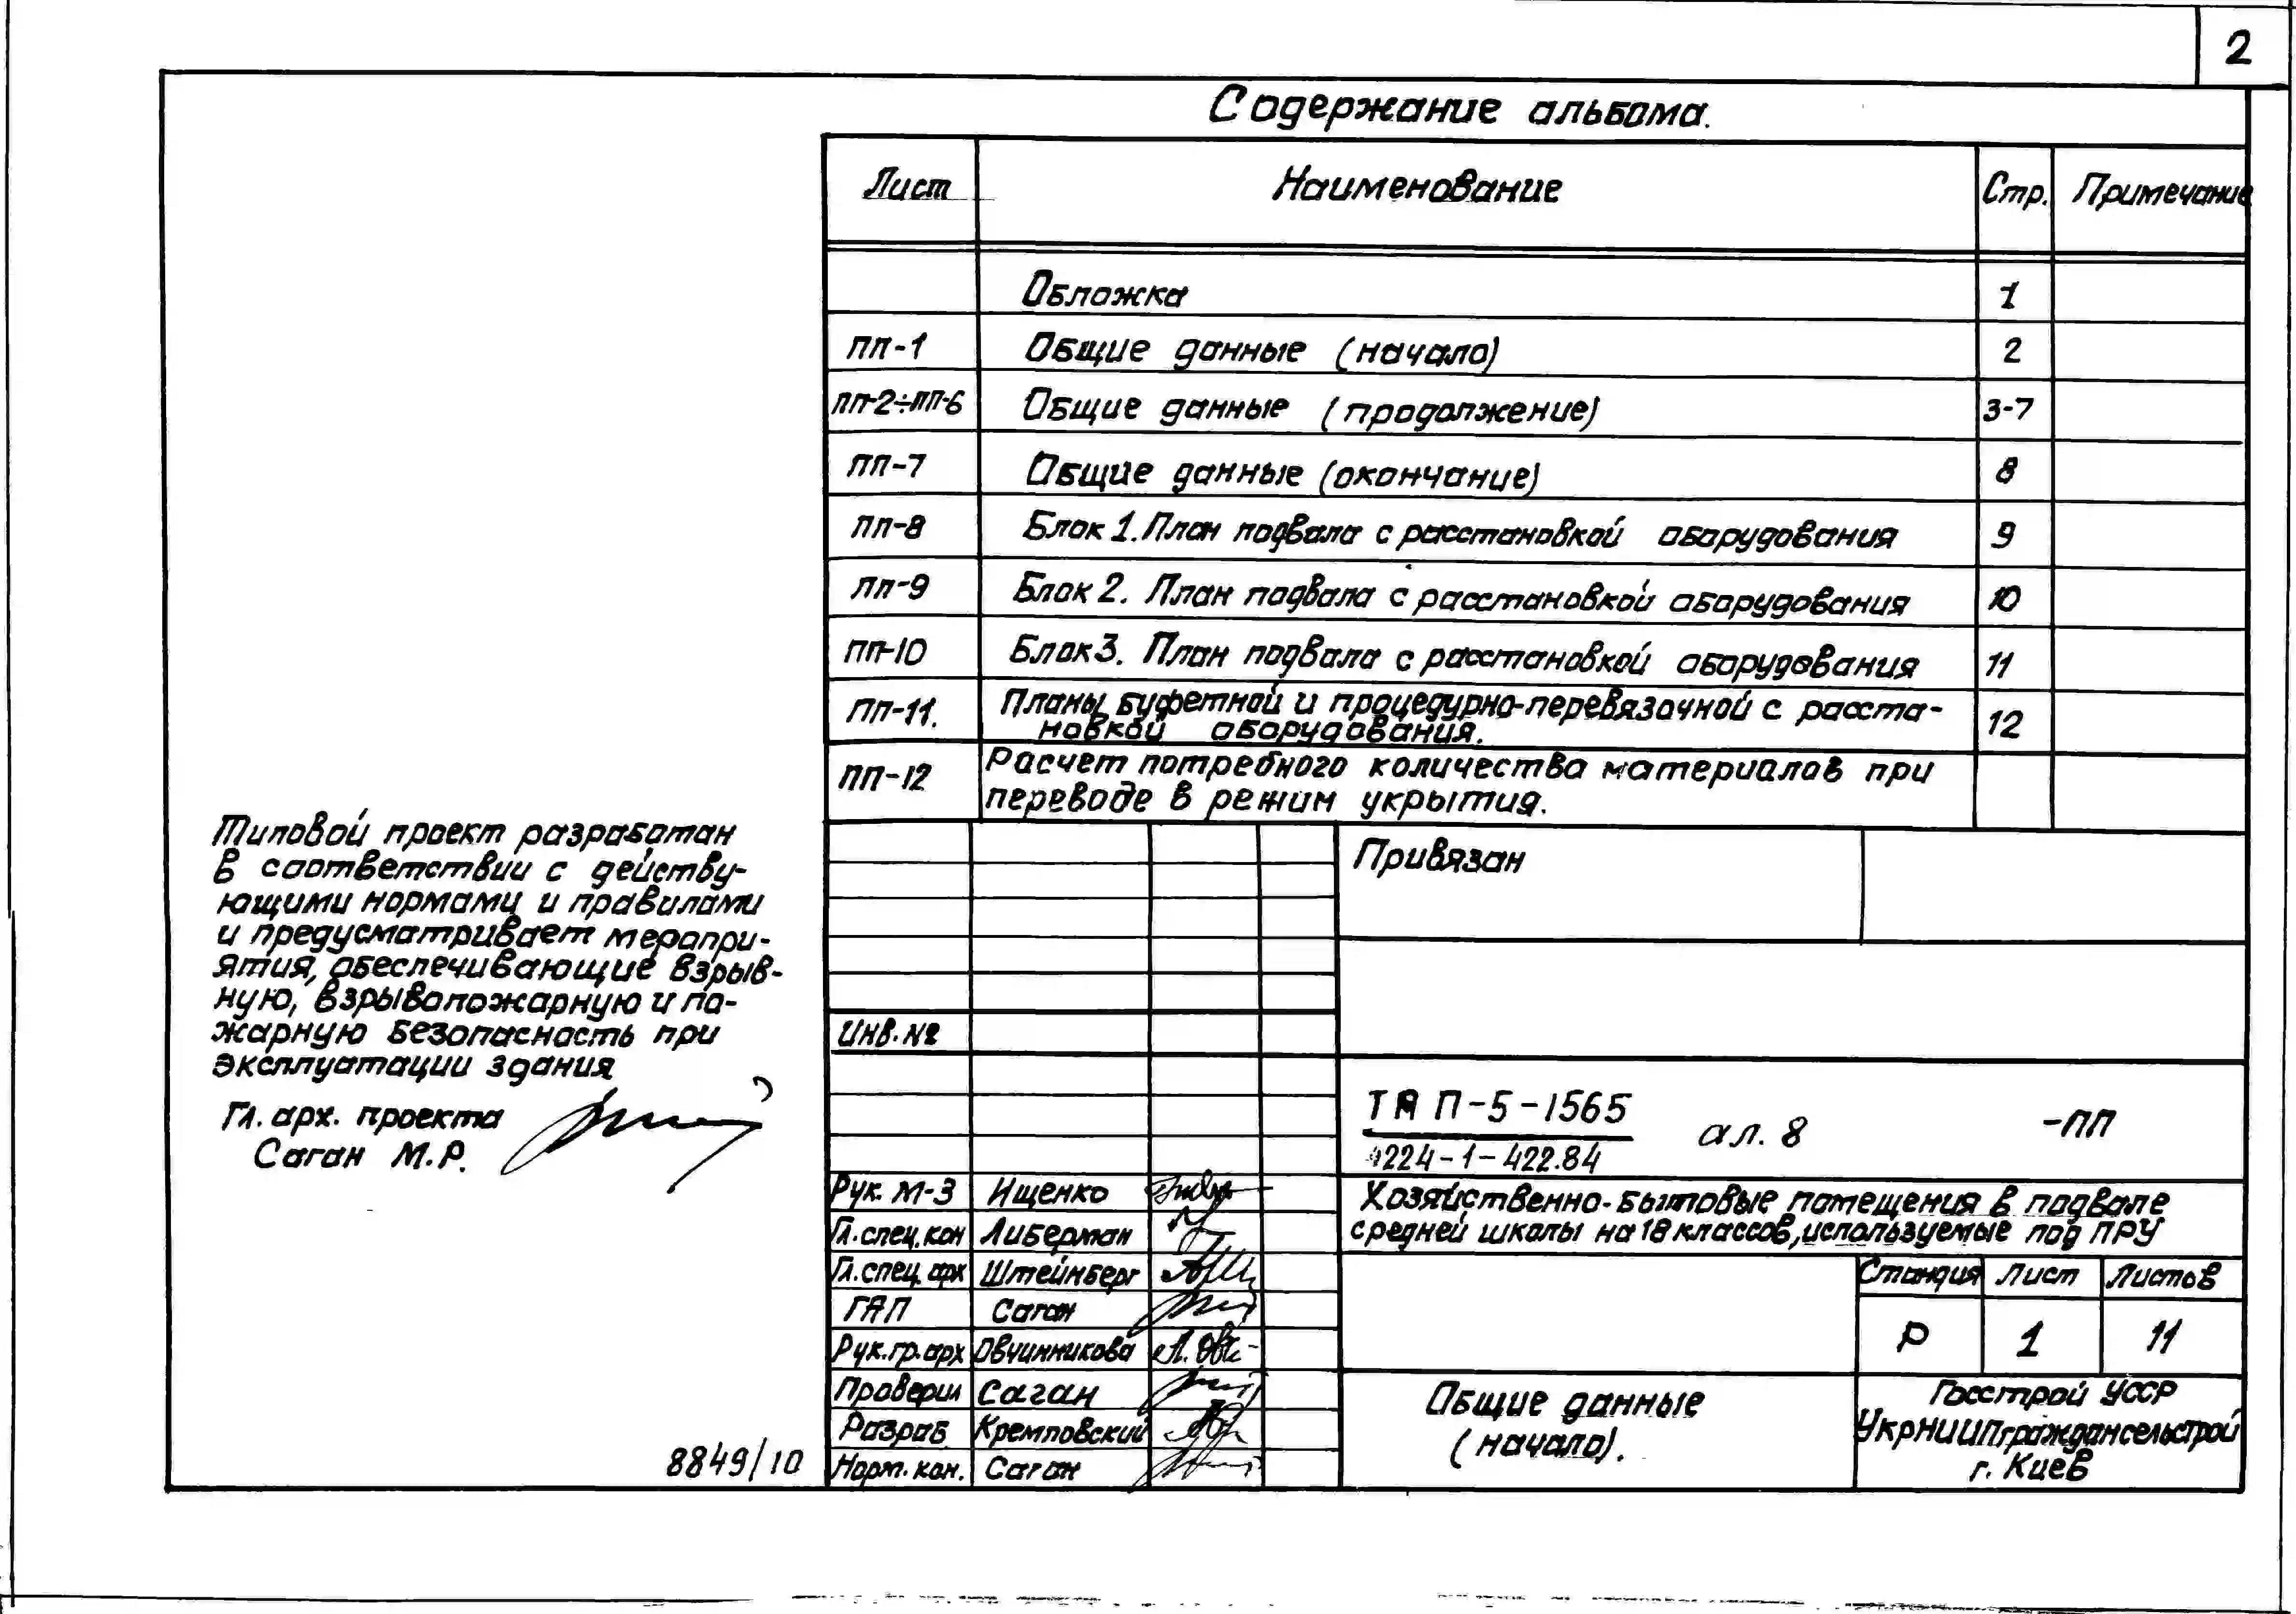 2
Содержание альбома.
Лист Наименование Стр. Примечание
Обложка 1
ПП-1 Общие данные (начало) 2
ПП-2÷ПП-6 Общие данные (продолжение) 3-7
ПП-7 Общие данные (окончание) 8
ПП-8 Блок 1. План подвала с расстановкой оборудования 9
ПП-9 Блок 2. План подвала с расстановкой оборудования 10
ПП-10 Блок 3. План подвала с расстановкой оборудования 11
ПП-11. Планы буфетной и процедурно-перевязочной с расста-
новкой оборудования. 12
ПП-12 Расчет потребного количества материалов при
переводе в режим укрытия.
Типовой проект разработан
в соответствии с действу-
ющими нормами и правилами
и предусматривает меропри-
ятия, обеспечивающие взрыв-
ную, взрывопожарную и по-
жарную безопасность при
эксплуатации здания
Гл. арх. проекта
Саган М.Р.
8849/10
Привязан
Инв.№
Рук. М-3 Ищенко
Гл.спец.кон Либерман
Гл.спец.арх Штейнберг
ГАП Саган
Рук.гр.арх Овчинникова
Проверил Саган
Разраб. Кремповский
Норм.кон. Саган
ТА П-5-1565
224-1-422.84
ал. 8
-ПП
Хозяйственно-бытовые помещения в подвале
средней школы на 18 классов, используемые под ПРУ
Стандия Лист Листов
Р 1 11
Общие данные
(начало).
Госстрой УССР
УкрНИИПграждансельстрой
г. Киев